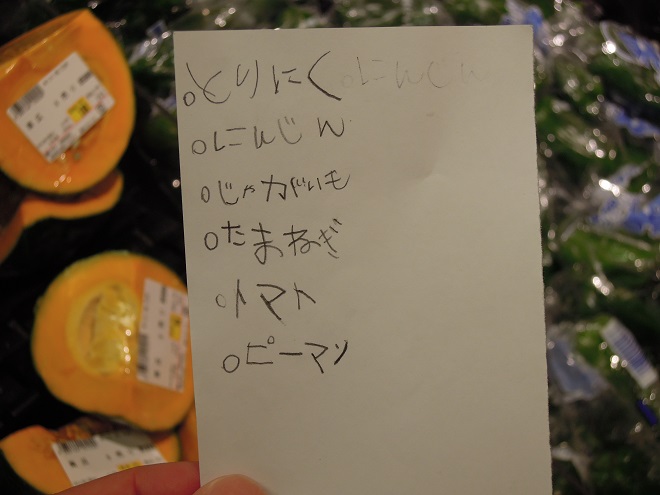 ○とりにく ○にんじん
○にんじん
○じゃがいも
○たまねぎ
○トマト
○ピーマン